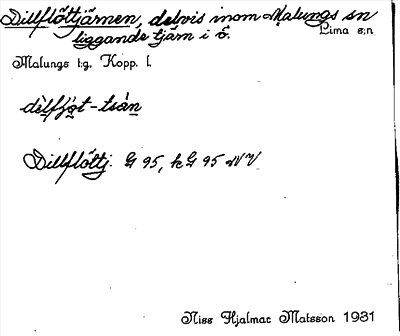 Dillflöttjärnen, delvis inom Malungs sn
liggande tjärn i S.
Lima s:n
Malungs t:g. Kopp. l.
dèlfjøt-tsàn
Dillflöttj. G 95, kG 95 NV
Niss Hjalmar Matsson 1931